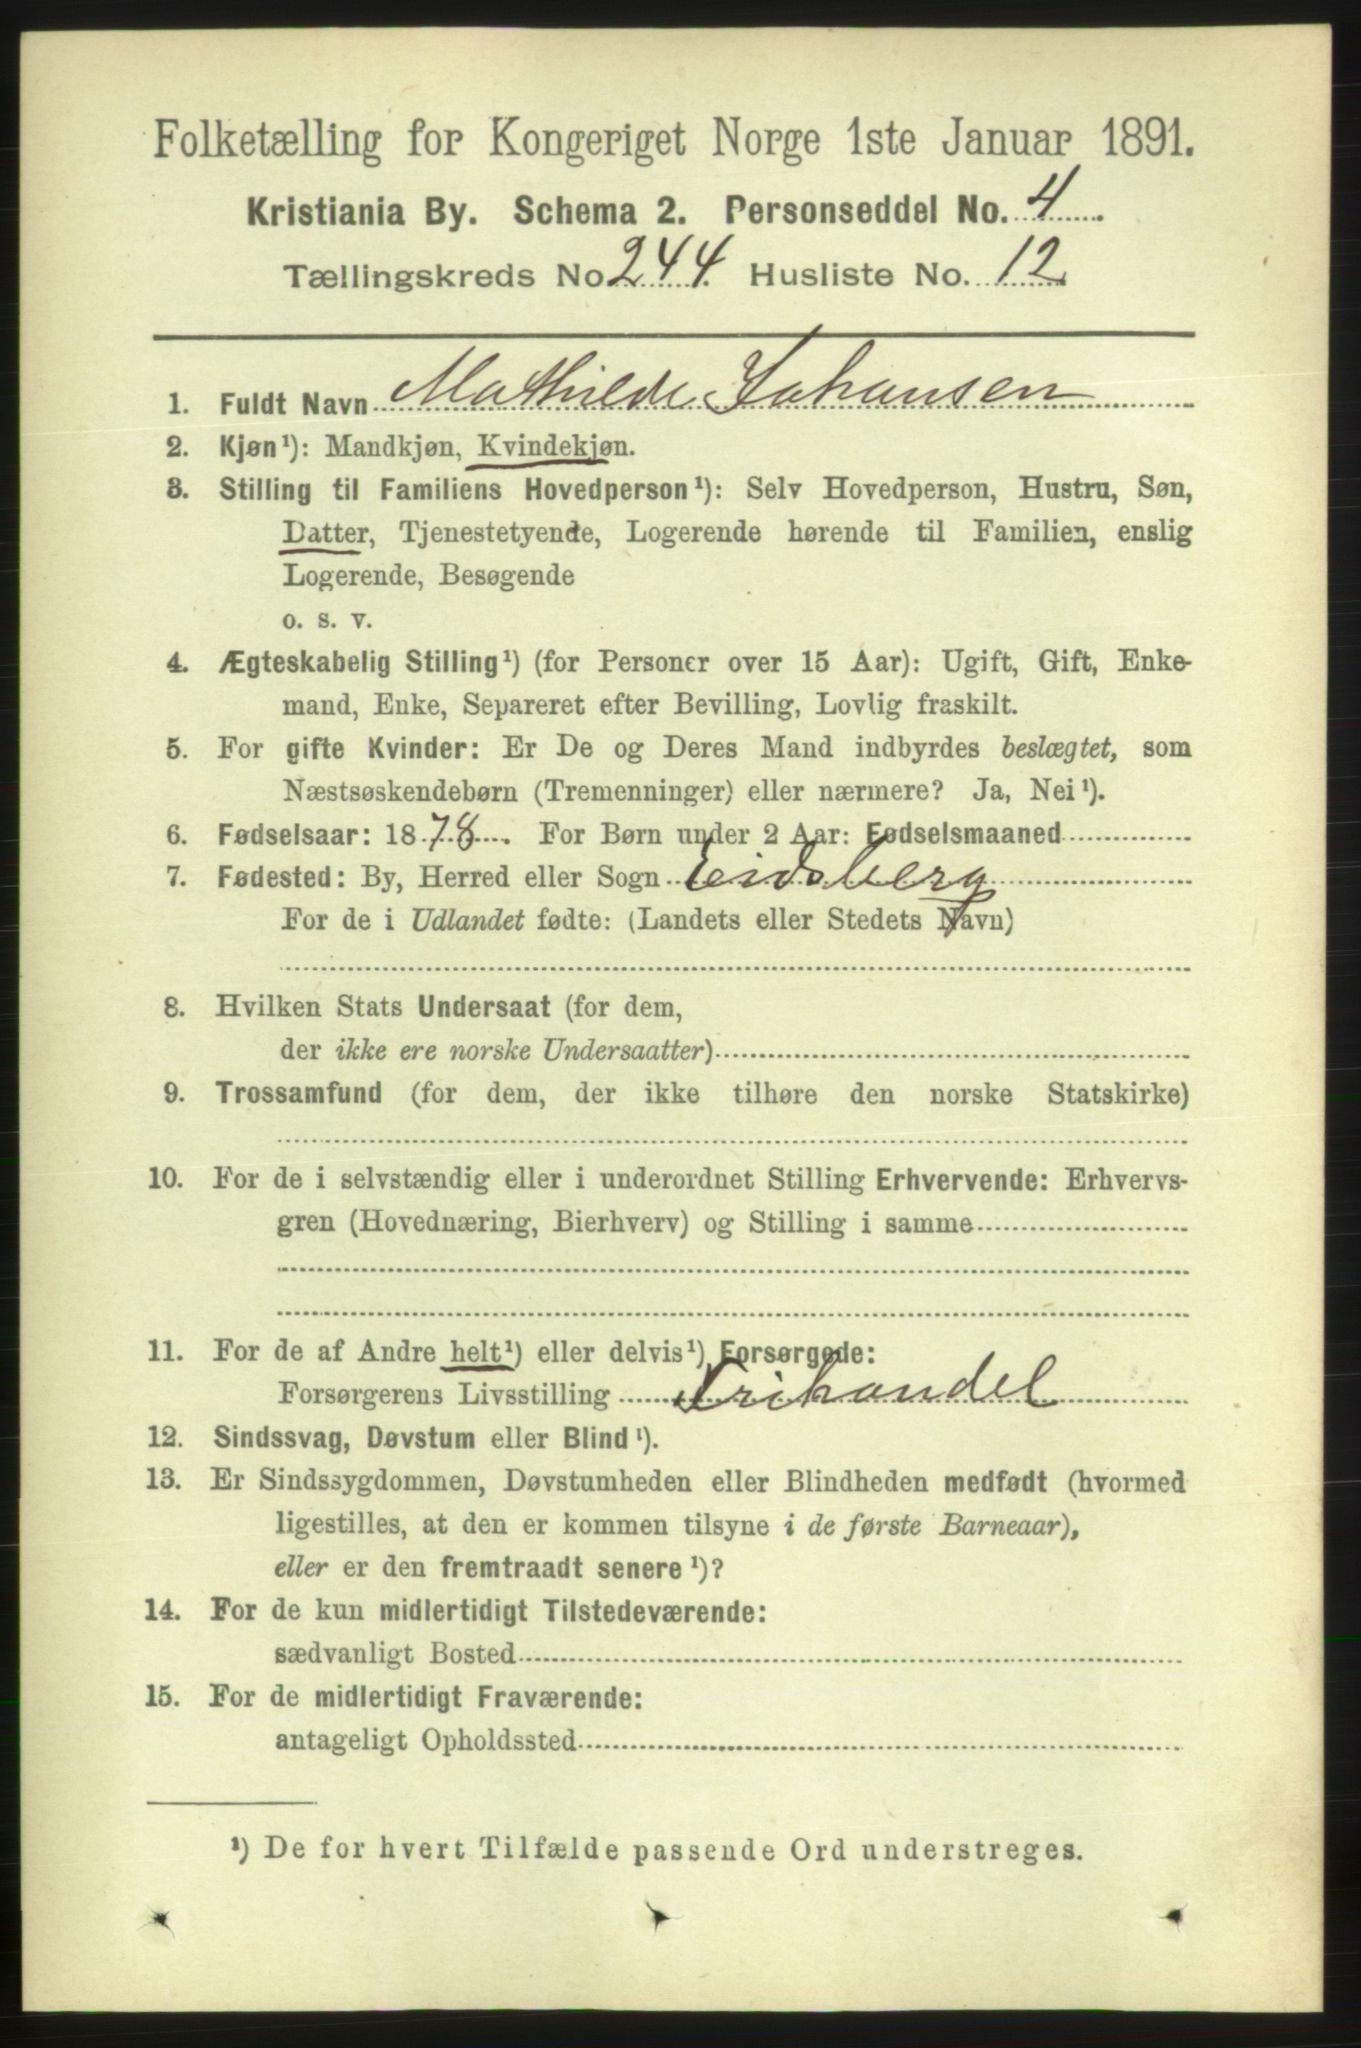 Folketælling for Kongeriget Norge 1ste Januar 1891.
Kristiania By. Schema 2. Personseddel No. 4.
Tællingskreds No. 244. Husliste No. 12
1. Fuldt Navn Mathilde Johansen
2. Kjøn¹): Mandkjøn, Kvindekjøn.
3. Stilling til Familiens Hovedperson¹): Selv Hovedperson, Hustru, Søn,
Datter, Tjenestetyende, Logerende hørende til Familien, enslig
Logerende, Besøgende
o. s. v.
4. Ægteskabelig Stilling¹) (for Personer over 15 Aar): Ugift, Gift, Enke-
mand, Enke, Separeret efter Bevilling, Lovlig fraskilt.
5. For gifte Kvinder: Er De og Deres Mand indbyrdes beslægtet, som
Næstsøskendebørn (Tremenninger) eller nærmere? Ja, Nei¹).
6. Fødselsaar: 1878. For Børn under 2 Aar: Fødselsmaaned
7. Fødested: By, Herred eller Sogn Eidsberg
For de i Udlandet fødte: (Landets eller Stedets Navn)
8. Hvilken Stats Undersaat (for dem,
der ikke ere norske Undersaatter)
9. Trossamfund (for dem, der ikke tilhøre den norske Statskirke)
10. For de i selvstændig eller i underordnet Stilling Erhvervende: Erhvervs-
gren (Hovednæring, Bierhverv) og Stilling i samme
11. For de af Andre helt¹) eller delvis¹) Forsørgede:
Forsørgerens Livsstilling Frihandel
12. Sindssvag, Døvstum eller Blind¹).
13. Er Sindssygdommen, Døvstumheden eller Blindheden medfødt (hvormed
ligestilles, at den er kommen tilsyne i de første Barneaar),
eller er den fremtraadt senere¹)?
14. For de kun midlertidigt Tilstedeværende:
sædvanligt Bosted
15. For de midlertidigt Fraværende:
antageligt Opholdssted
¹) De for hvert Tilfælde passende Ord understreges.